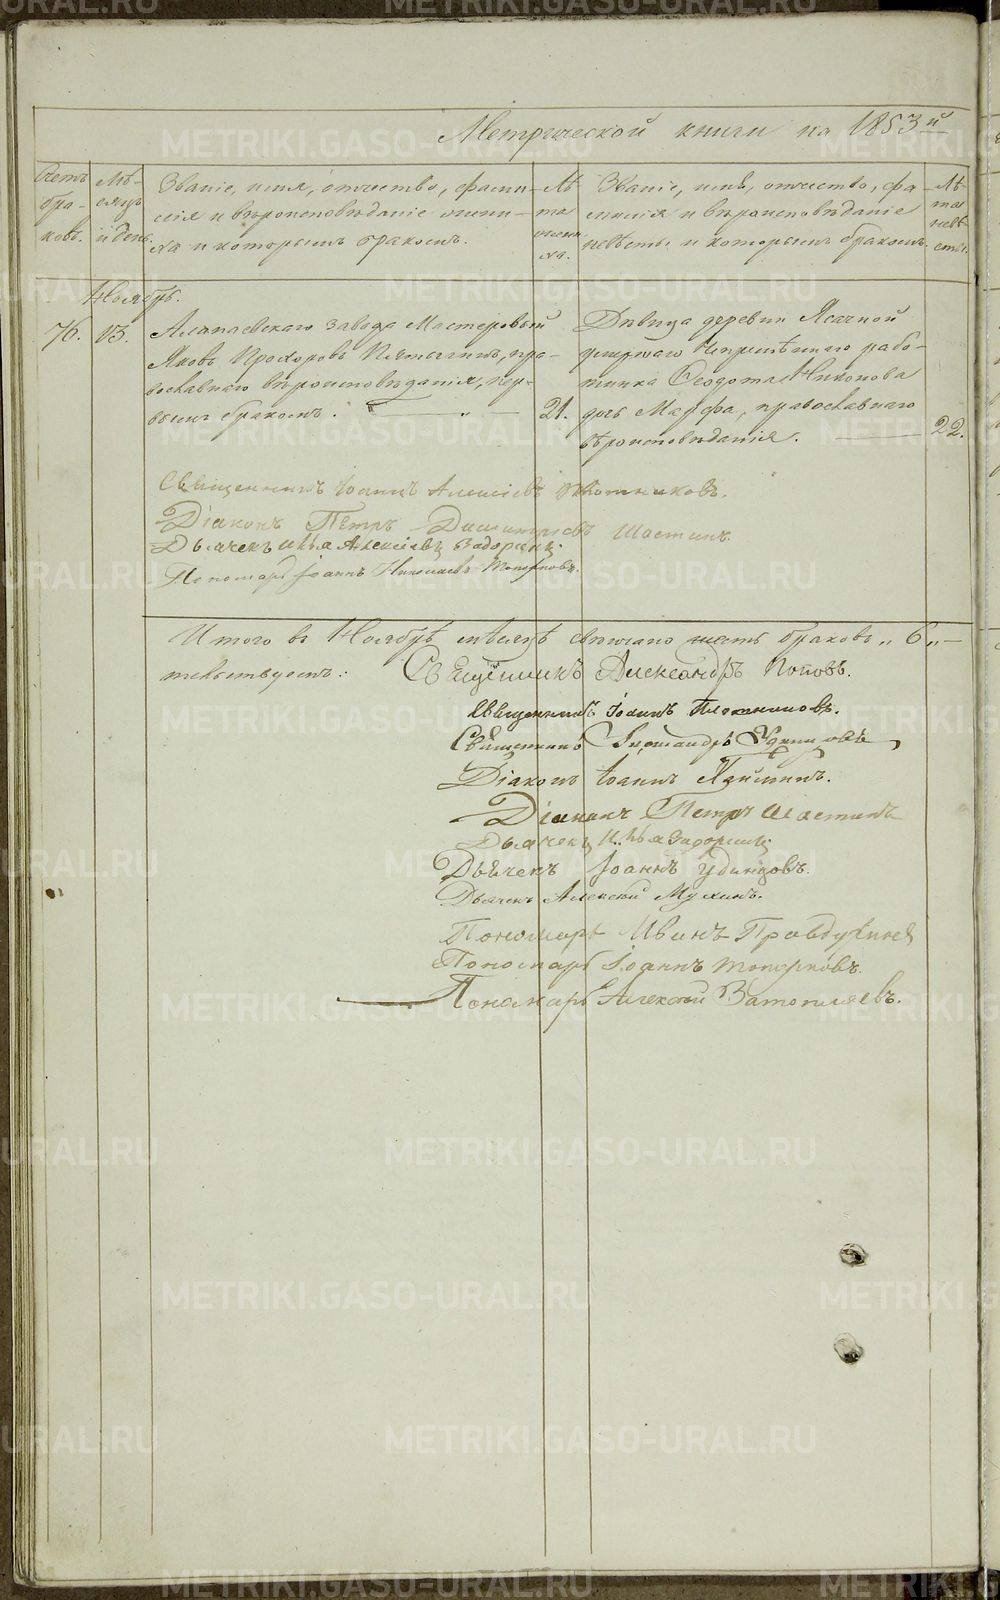 Метрической книги на 1853й
Счетъ бра- ковъ.
Мѣ- сяцъ и день.
Званіе, имя, отчество, фами-
лія и вѣроисповѣданіе жени-
ха и которымъ бракомъ.
Лѣ- та жени- ха.
Званіе, имя, отчество, фа-
милія и вѣроисповѣданіе
невѣсты и которымъ бракомъ.
Лѣ- та невѣ- сты.
Ноябрь.
76. 13. Алапаевскаго завода Мастеровый
Яковъ Прохоровъ пра-
вославнаго вѣроисповѣданія, пер-
вымъ бракомъ. 21.
Дѣвица деревни Ясачной
умершаго Непремѣннаго рабо-
тника Ѳеодота Никонова
дочь Марфа, православнаго
вѣроисповѣданія. 22.
Священникъ Іоаннъ Алексіевъ
Діаконъ Петръ Димитріевъ Шастинъ
Дьячекъ Илья Алексіевъ Задоринъ
Пономарь Іоаннъ Николаевъ Топорковъ.
Итого въ Ноябрѣ мѣсяцѣ свѣнчано шесть браковъ „6„
тельствуетъ:
Священникъ Александръ Поповъ.
Священникъ Іоаннъ
Священникъ Александръ Удинцовъ
Діаконъ Іоаннъ
Діаконъ Петръ Шастинъ
Дьячекъ Илья Задоринъ
Дьячекъ Іоаннъ Удинцовъ.
Дьячекъ Алексѣй Мухинъ.
Пономарь Иванъ Правдухинъ
Пономарь Іоаннъ Топорковъ.
Пономарь Алексѣй Ватопляевъ.
METRIKI.GASO-URAL.RU